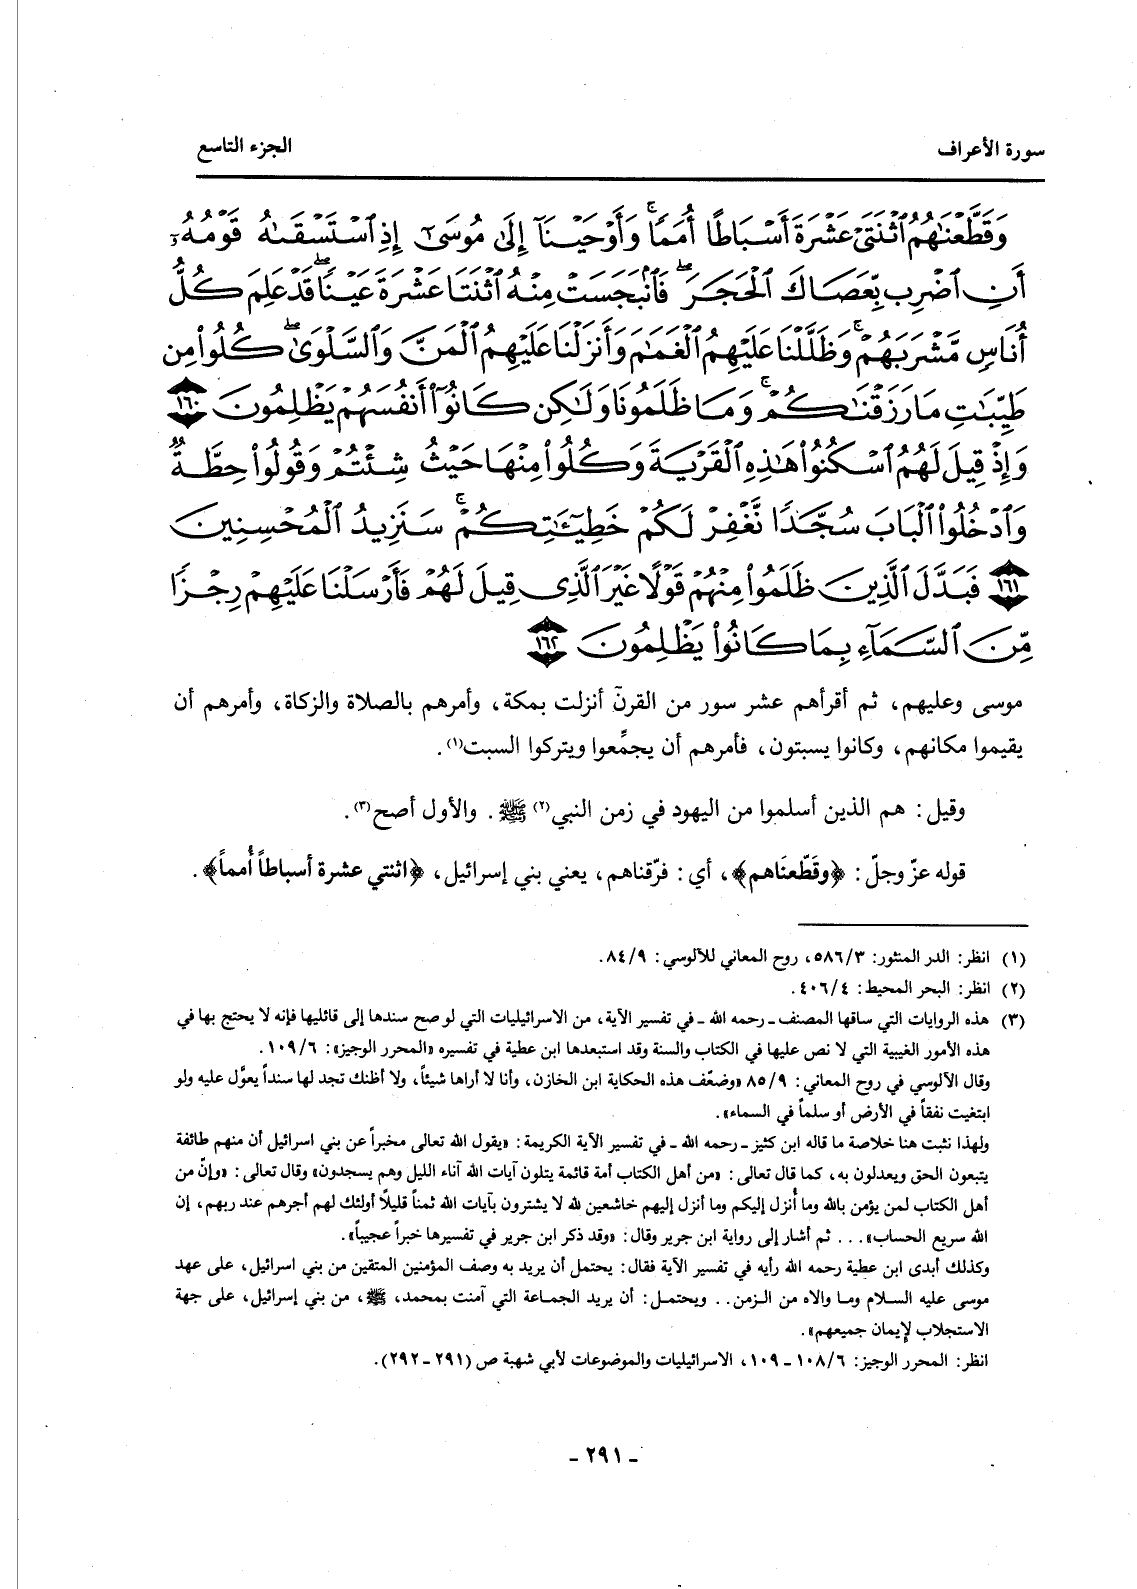 سورة الأعراف
الجزء التاسع
وَقَطَّعْنَٰهُمُ ٱثْنَتَىْ عَشْرَةَ أَسْبَاطًا أُمَمًا ۚ وَأَوْحَيْنَآ إِلَىٰ مُوسَىٰٓ إِذِ ٱسْتَسْقَىٰهُ قَوْمُهُۥٓ
أَنِ ٱضْرِب بِّعَصَاكَ ٱلْحَجَرَ ۖ فَٱنۢبَجَسَتْ مِنْهُ ٱثْنَتَا عَشْرَةَ عَيْنًا ۖ قَدْ عَلِمَ كُلُّ
أُنَاسٍ مَّشْرَبَهُمْ ۚ وَظَلَّلْنَا عَلَيْهِمُ ٱلْغَمَٰمَ وَأَنزَلْنَا عَلَيْهِمُ ٱلْمَنَّ وَٱلسَّلْوَىٰ ۖ كُلُوا۟ مِن
طَيِّبَٰتِ مَا رَزَقْنَٰكُمْ ۚ وَمَا ظَلَمُونَا وَلَٰكِن كَانُوٓا۟ أَنفُسَهُمْ يَظْلِمُونَ ١٦٠
وَإِذْ قِيلَ لَهُمُ ٱسْكُنُوا۟ هَٰذِهِ ٱلْقَرْيَةَ وَكُلُوا۟ مِنْهَا حَيْثُ شِئْتُمْ وَقُولُوا۟ حِطَّةٌ
وَٱدْخُلُوا۟ ٱلْبَابَ سُجَّدًا نَّغْفِرْ لَكُمْ خَطِيٓـَٰٔتِكُمْ ۚ سَنَزِيدُ ٱلْمُحْسِنِينَ
١٦١ فَبَدَّلَ ٱلَّذِينَ ظَلَمُوا۟ مِنْهُمْ قَوْلًا غَيْرَ ٱلَّذِى قِيلَ لَهُمْ فَأَرْسَلْنَا عَلَيْهِمْ رِجْزًا
مِّنَ ٱلسَّمَآءِ بِمَا كَانُوا۟ يَظْلِمُونَ ١٦٢
موسى وعليهم، ثم أقرأهم عشر سور من القرنّ أنزلت بمكة، وأمرهم بالصلاة والزكاة، وأمرهم أن
يقيموا مكانهم، وكانوا يسبتون، فأمرهم أن يجمِّعوا ويتركوا السبت(١).
وقيل: هم الذين أسلموا من اليهود في زمن النبي(٢) ﷺ. والأول أصح(٣).
قوله عزّ وجلّ: ﴿وقَطّعنَاهم﴾، أي: فرّقناهم، يعني بني إسرائيل، ﴿اثنتي عشرة أسباطاً أُمماً﴾.
(١) انظر: الدر المنثور: ٥٨٦/٣، روح المعاني للآلوسي: ٨٤/٩.
(٢) انظر: البحر المحيط: ٤٠٦/٤.
(٣) هذه الروايات التي ساقها المصنف ـ رحمه الله ـ في تفسير الآية، من الاسرائيليات التي لو صح سندها إلى قائليها فإنه لا يحتج بها في
هذه الأمور الغيبية التي لا نص عليها في الكتاب والسنة وقد استبعدها ابن عطية في تفسيره «المحرر الوجيز»: ١٠٩/٦.
وقال الآلوسي في روح المعاني: ٨٥/٩ «وضعّف هذه الحكاية ابن الخازن، وأنا لا أراها شيئاً، ولا أظنك تجد لها سنداً يعوَّل عليه ولو
ابتغيت نفقاً في الأرض أو سلماً في السماء».
ولهذا نثبت هنا خلاصة ما قاله ابن كثير ـ رحمه الله ـ في تفسير الآية الكريمة: «يقول الله تعالى مخبراً عن بني اسرائيل أن منهم طائفة
يتبعون الحق ويعدلون به، كما قال تعالى: «من أهل الكتاب أمة قائمة يتلون آيات الله آناء الليل وهم يسجدون» وقال تعالى: «وإنّ من
أهل الكتاب لمن يؤمن بالله وما أُنزل إليكم وما أنزل إليهم خاشعين لله لا يشترون بآيات الله ثمناً قليلاً أولئك لهم أجرهم عند ربهم، إن
الله سريع الحساب»... ثم أشار إلى رواية ابن جرير وقال: «وقد ذكر ابن جرير في تفسيرها خبراً عجيباً».
وكذلك أبدى ابن عطية رحمه الله رأيه في تفسير الآية فقال: يحتمل أن يريد به وصف المؤمنين المتقين من بني اسرائيل، على عهد
موسى عليه السلام وما والاه من الزمن.. ويحتمل: أن يريد الجماعة التي آمنت بمحمد، ﷺ، من بني إسرائيل، على جهة
الاستجلاب لإيمان جميعهم».
انظر: المحرر الوجيز: ١٠٨/٦ ـ ١٠٩، الاسرائيليات والموضوعات لأبي شهبة ص (٢٩١ ـ ٢٩٢).
ـ ٢٩١ ـ